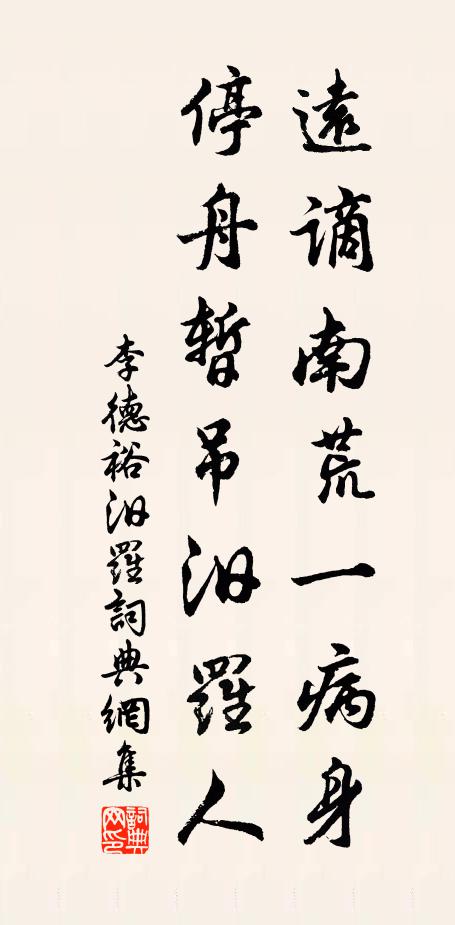 遠謫南荒一病身
停舟暫吊汨羅人
李德裕汨羅詞典網集
詞典網印